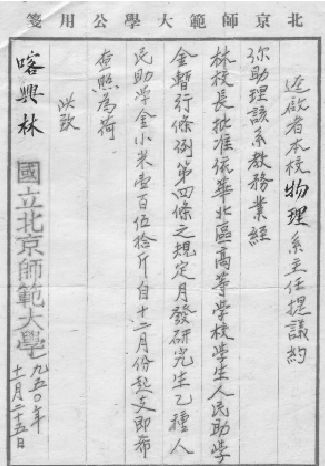 北京師範大學公用箋
逕啟者本校物理系主任提議約
你助理該系教務業經
林校長批准依華北區高等學校學生人民助學
金暫行條例第四條之規定月發研究生乙種人
民助学金小米壹百伍拾斤自十二月份起支即希
查照為荷
此致
喀興林
國立北京師範大學
一九五〇年
十一月二十五日